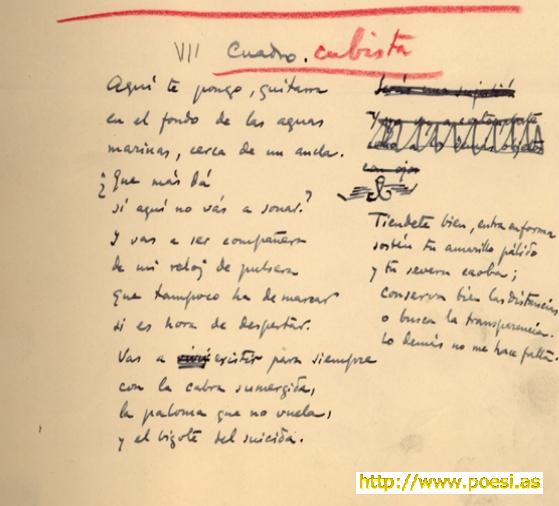 VII Cuadro. cubista
Aquí te pongo, guitarra
en el fondo de las aguas
marinas, cerca de un ancla.
¿Que más dá
si aquí no vás a sonar?
Y vas a ser compañera
de mi reloj de pulsera
que tampoco ha de marcar
si es hora de despertar.
Vas a existir para siempre
con la cabra sumergida,
la paloma que no vuela,
y el bigote del suicida.
Serás una
con ojos
Tiendete bien, entra en forma
sostén tu amarillo pálido
y tu severa caoba;
conserva bien las distancias
o busca la transparencia.
Lo demás no me hace falta.
http://www.poesi.as